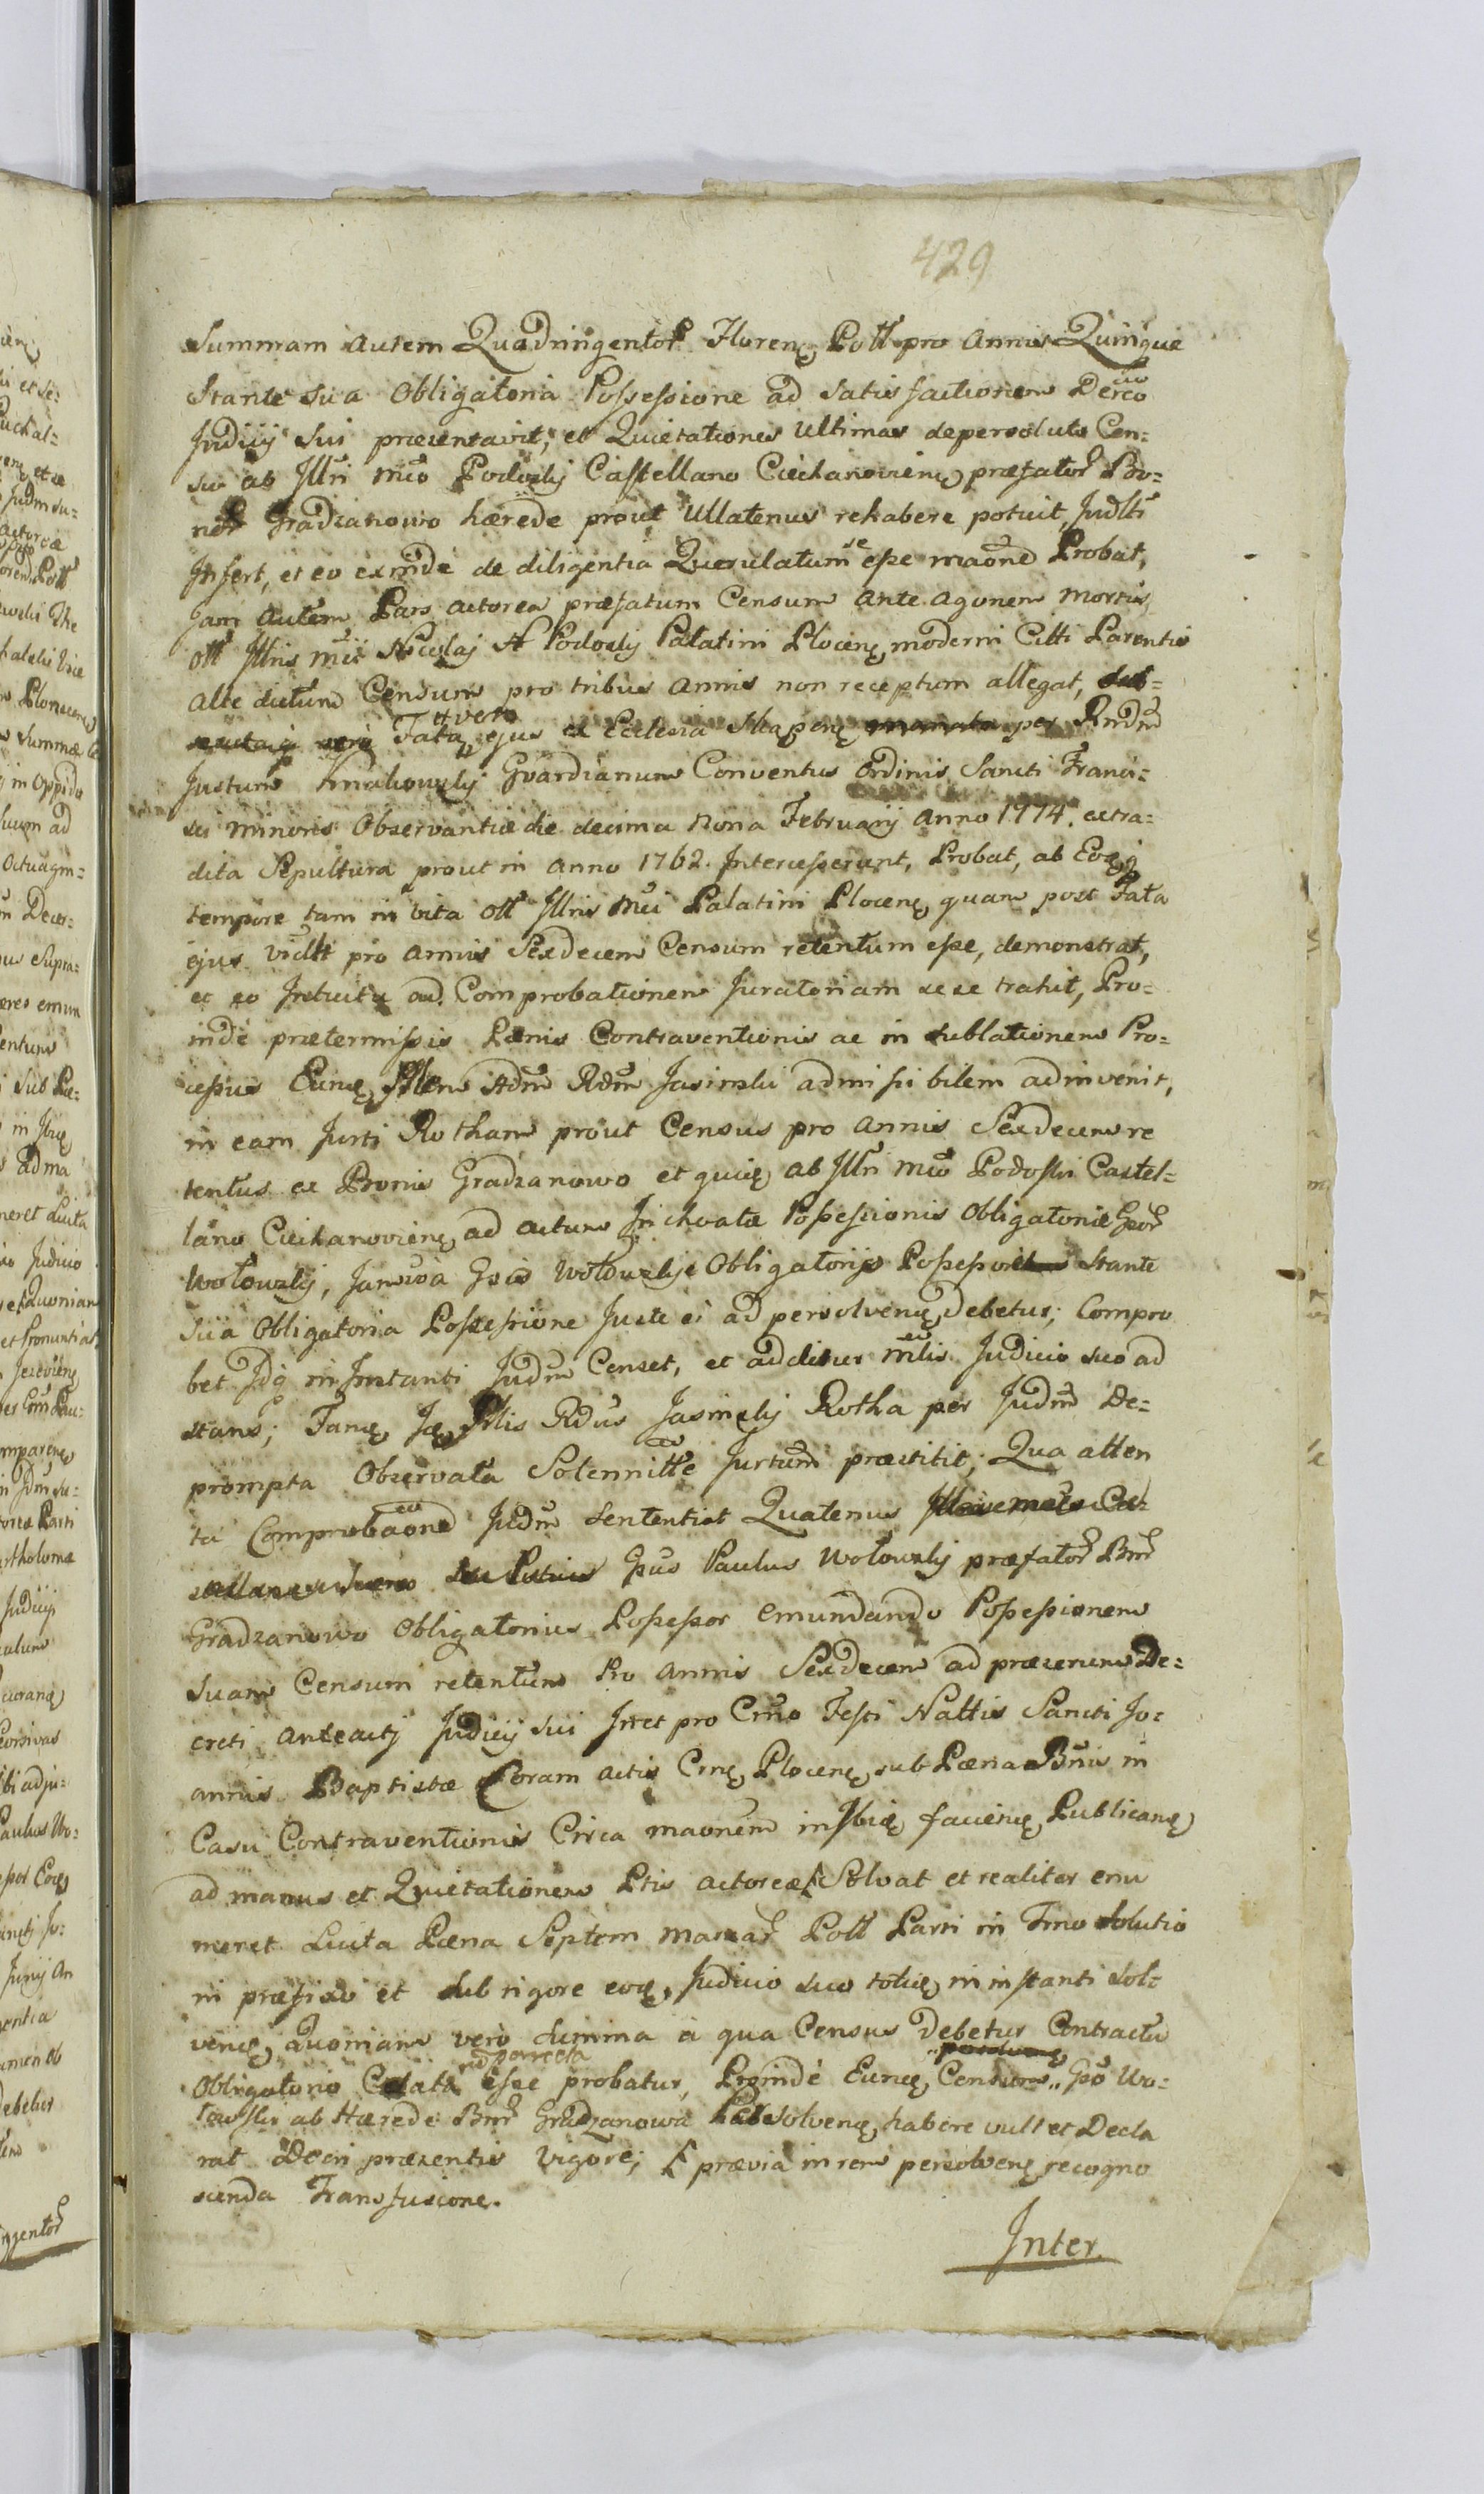 429
Summam autem Quadringentor Floreng Poll pro annis Quinque
Stante sua Obligatoria Possessione ad satisfactionem Decreo
Judicij sui præsentavit, et Quietationes Ultimas de persoluto Cen=
su ab Illri Mco Podoskj Castellano Ciechanovieng præfator Bo=
nor Gradzanowo hærede prout Ullatenus rehabere potuit, Judlti
Infert, et eo exinde de diligentia Querulatum se esse maone Probat,
Jam autem Pars actorea præfatum Censum ante agonem mortis
oll Illris Mci Podoskj Palatini Ploceng moderni Citti Parentis
alte dictum Censum pro tribus annis non receptum allegat,
Fata vero ejus ex Ecclesia per Rndm
Justum Guardianum Conventus Ordinis Sancti Franci=
sci Minoris Observantiæ die decima nona Februarij anno 1774. extra=
dita Sepultura prout in anno 1762. Intercesserunt, Probat, ab Eoq
tempore tam in vita oll Illris Mci Palatini Ploceng quam post Fata
ejus vidlt pro annis Sexdecem Censum retentum esse, demonstrat,
et eo Intuitu ad Comprobationem Juratoriam sese trahit, Pro=
inde prætermissis Pænis Contraventionis ac in sublationem Pro=
cessus Eung Illrem Adm Rdm Jasinski admissibilem adinvenit,
in eam Jurti Rotham prout Census pro annis Sexdecem re
tentus ex Bonis Gradzanowo et ab Illri Mco Podoski Castel=
lano Ciechanovieng ad actum Inchoatæ Possessionis Obligatoriæ Gsor
Wołowskj, Gsis Wołowskje Obligatorijs Possesori Stante
sua Obligatoria Possessione Juste ei ad persolveng debetur; Compro
bet Idq in Instanti Judm Censet, et additur mlis Judicio suo ad
stans; Tanq Plis Rdus Jasinskj Rotha per Judm De=
prompta Observata Solennitte Jurtum præstitit; Qua atten
ta Comprobaone Judm sententiat Quatenus
Gsus Paulus Wołowskj præfator Bnr
Gradzanowo Obligatorius Possessor emundando Possessionem
suam Censum retentum Pro annis Sexdecem ad præsens De=
creti anteactj Judicij sui Irret pro Crno Festi Nattis Sancti Jo=
annis Baptistæ Coram actis Crng Ploceng sub Pæna Bnis in
Casu Contraventionis Circa maonem facieng Publicang
ad manus et Quietationem Ptis actoreæ Solvat et realiter enu
meret Luita Pæna Septem Marcar Poll Parti in Tmo Solutio
ni præfixo et sub rigore eoq, Judicio suo totiq in instanti sol=
veng quoniam vero summa a qua Census Debetur Contractu
Obligatorio esse probatur, Proinde Eunq Censum Gso Wo=
łowski ab Hærede Bnr Gradzanowo Persolveng habere vult et Decla
rat Decri præsentis vigore; prævia in rem persolveng recogno
scenda Transfusione.
Inter.